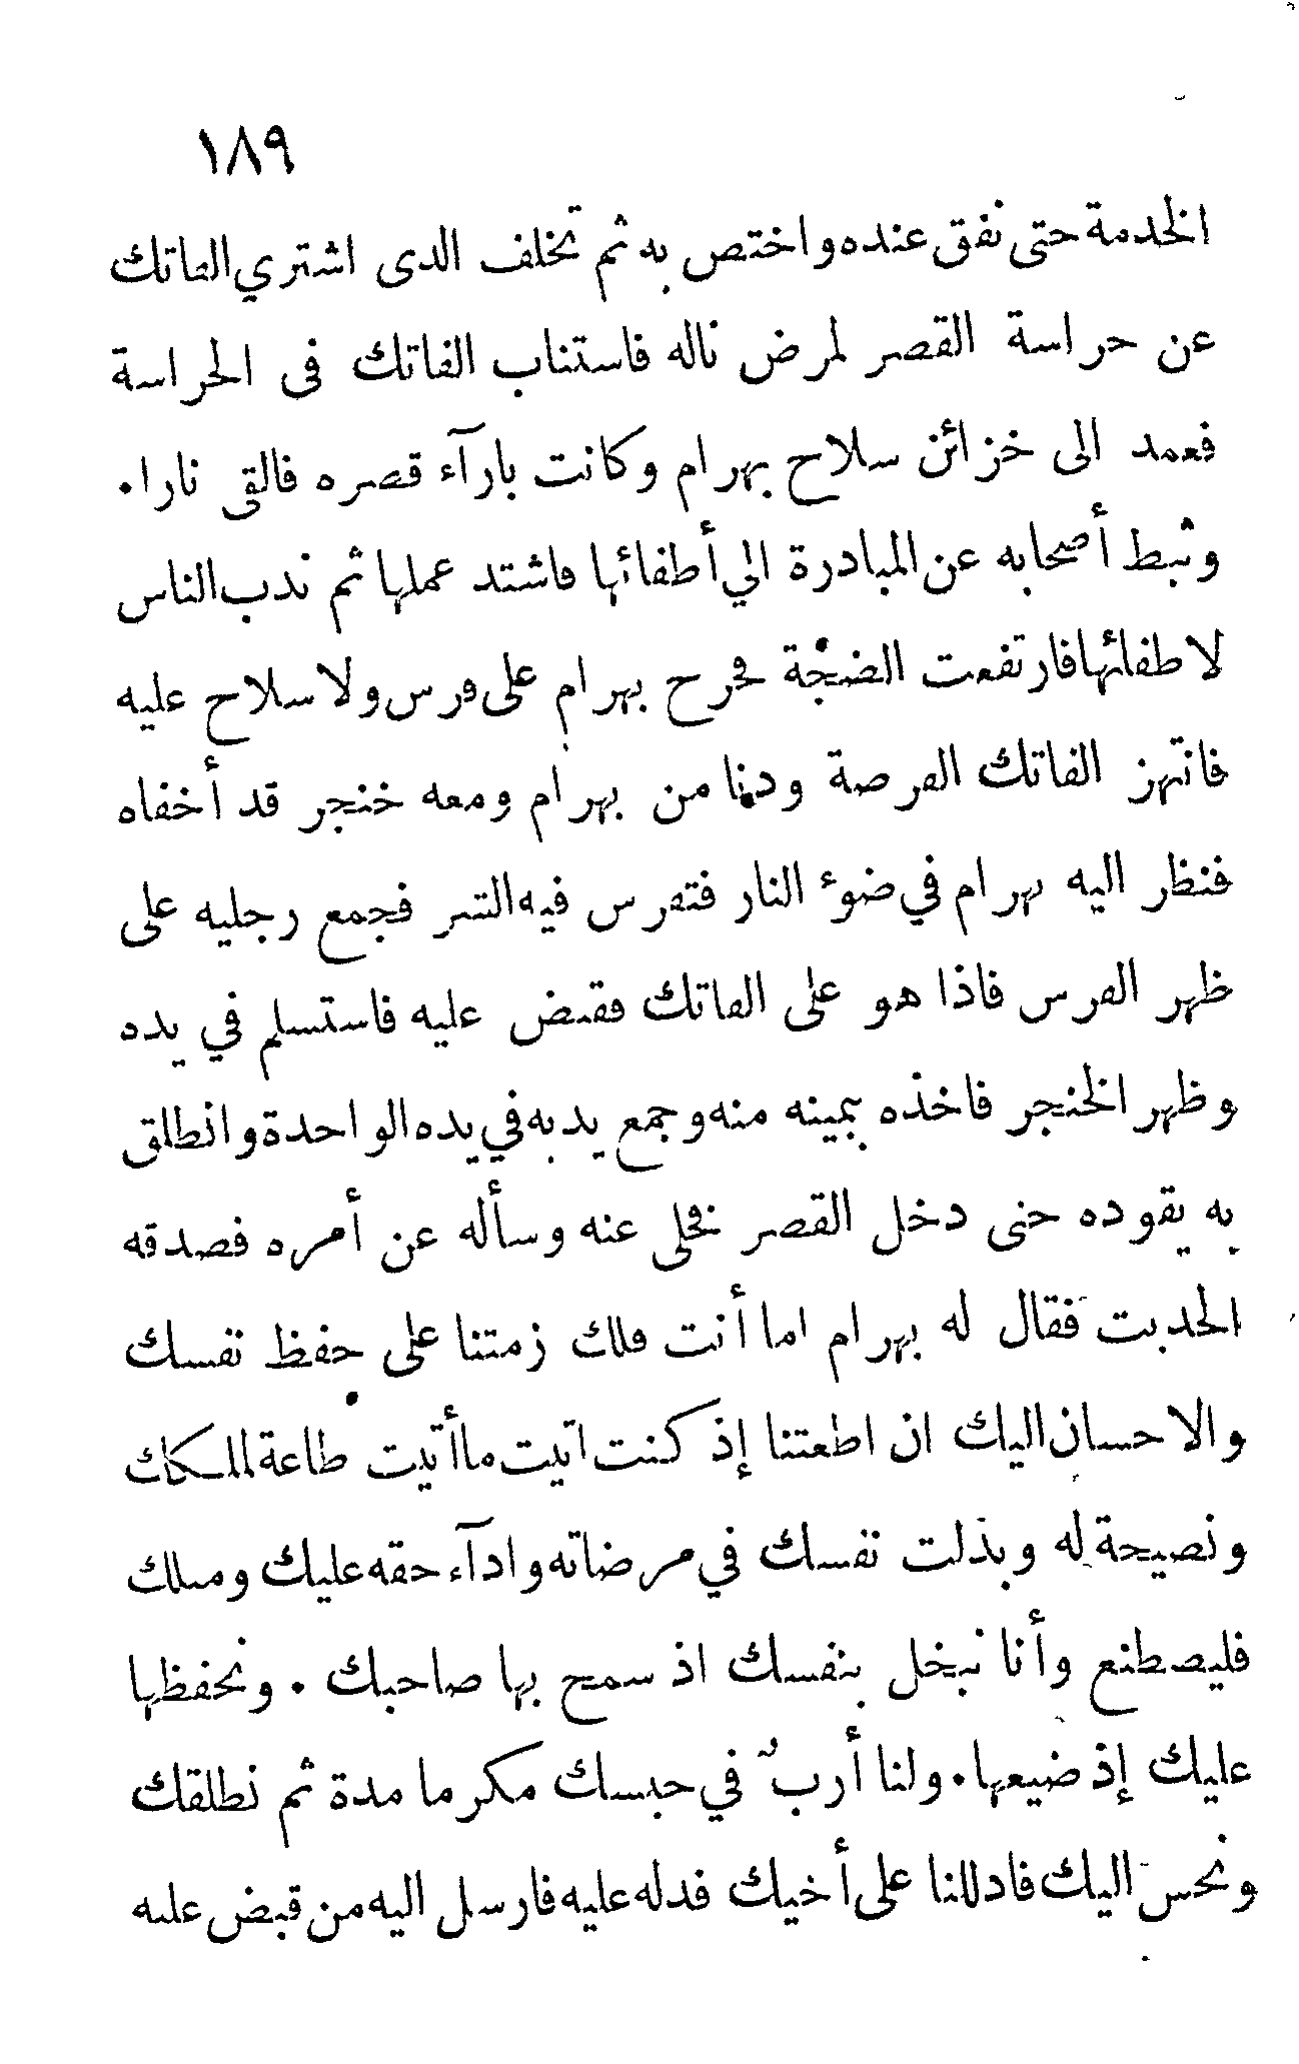 ١٨٩
الخدمة حتى نفق عنده واختص به ثم تخلف الذى اشتري الفاتك
عن حراسة القصر لمرض ناله فاستناب الفاتك فى الحراسة
فعمد الى خزائن سلاح بهرام وكانت بارآء قصره فالقى نارا.
وثبط أصحابه عن المبادرة الي أطفائها فاشتد عملها ثم ندب الناس
لاطفائها فارتفعت الضجة فخرج بهرام على فرس ولا سلاح عليه
فانتهز الفاتك الفرصة ودنا من بهرام ومعه خنجر قد أخفاه
فنظر اليه بهرام في ضوء النار فتفرس فيه الشر فجمع رجليه على
ظهر الفرس فاذا هو على الفاتك فقبض عليه فاستسلم في يده
وظهر الخنجر فاخذه بيمينه منه وجمع يديه في يده الواحدة وانطلق
به يقوده حتى دخل القصر فخلى عنه وسأله عن أمره فصدقه
الحديث فقال له بهرام اما أنت فلك زمتنا على حفظ نفسك
والاحسان اليك ان اطعتنا إذ كنت اتيت ما أتيت طاعة لملكك
ونصيحة له وبذلت نفسك في مرضاته وادآء حقه عليك ومثلك
فليصطنع وأنا نبخل بنفسك اذ سمح بها صاحبك. ونحفظها
عليك إذ ضيعها. ولنا أربٌ في حبسك مكرما مدة ثم نطلقك
ونحسن اليك فادللنا على أخيك فدله عليه فارسل اليه من قبض عليه